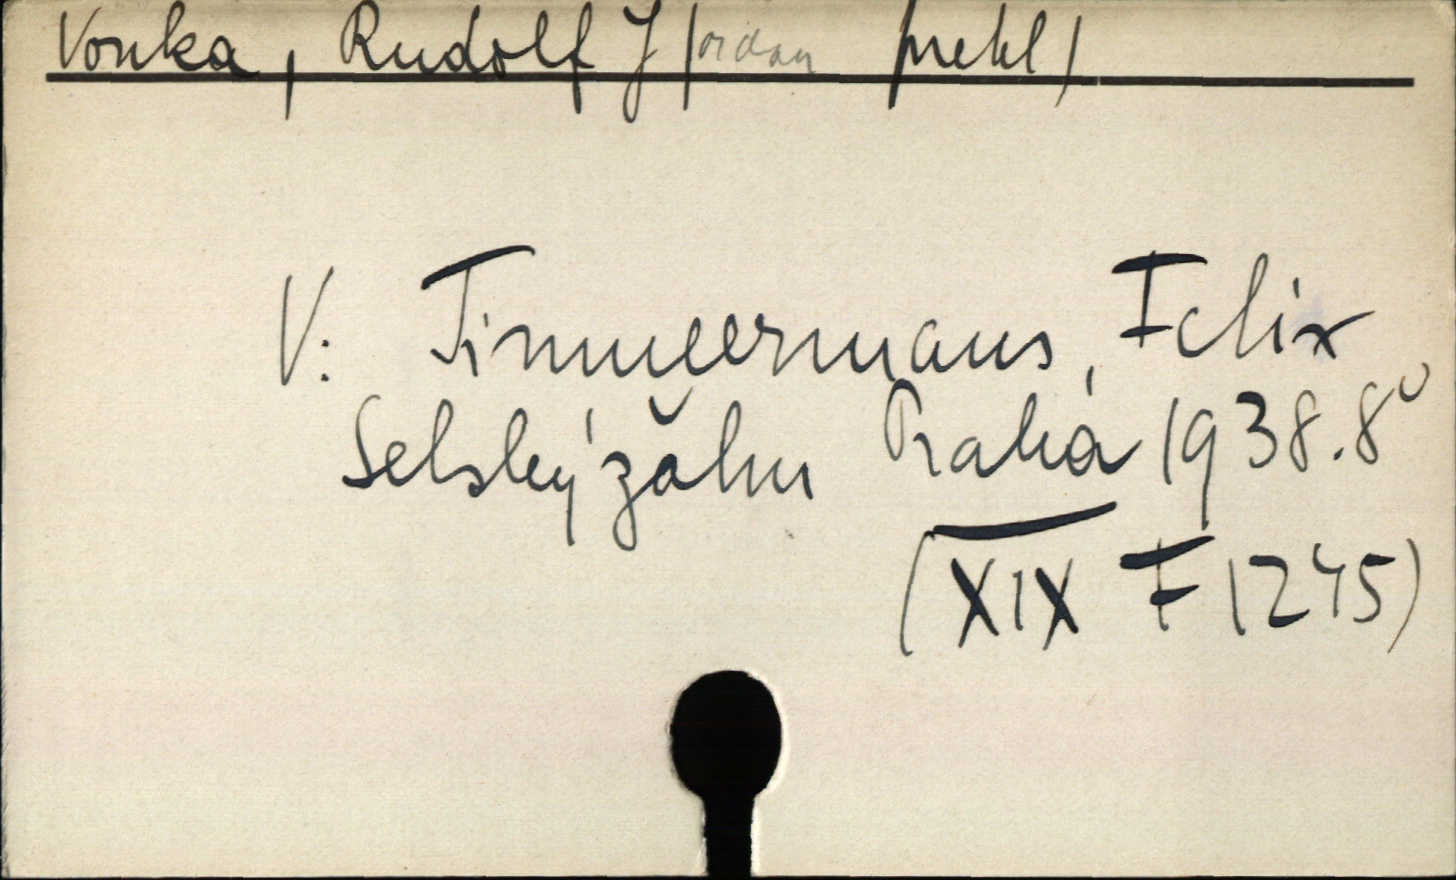 Vonka, Rudolf J(ordan překl)
V: Timmermans, Felix
Selský žalm Praha 1938.8°
(XIX F 1245)